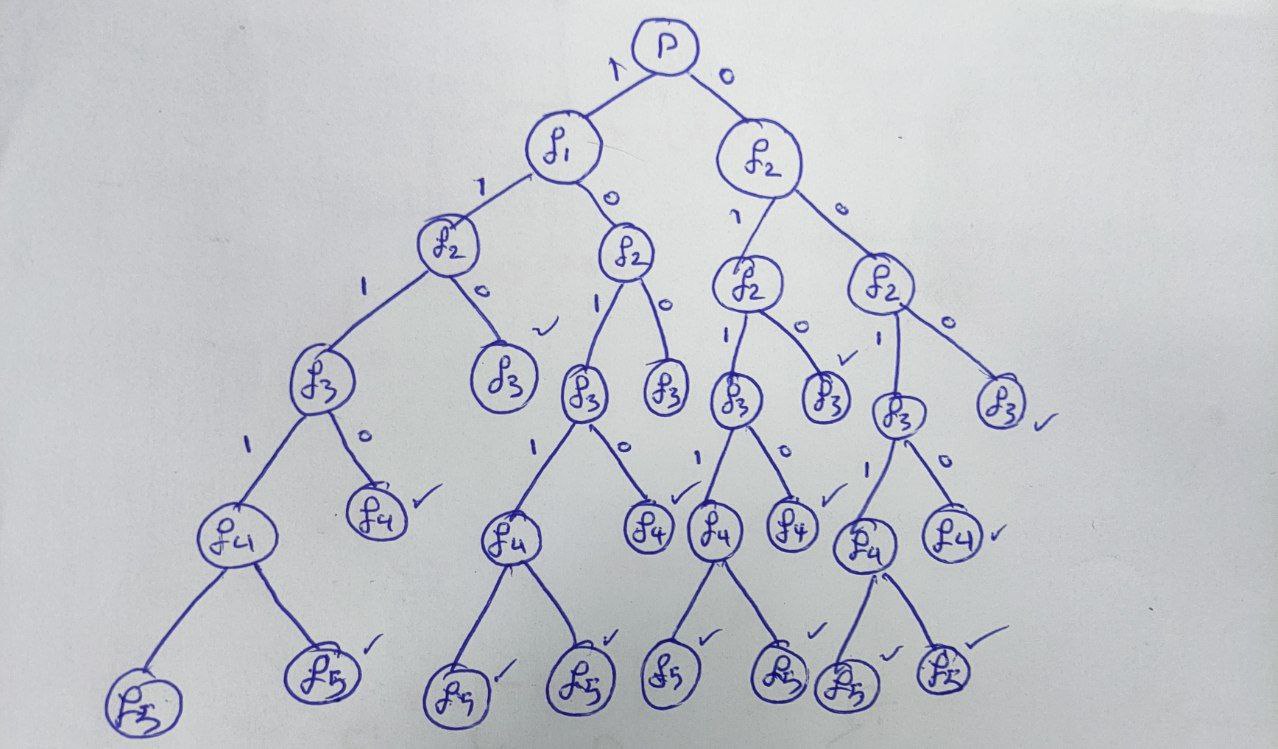 P
1 0
f1 f2
1 0 1 0
f2 f2 f2 f2
1 0 ✓ 1 0 1 0 ✓ 1 0
f3 f3 f3 f3 f3 f3 f3 f3 ✓
1 0 ✓ 1 0 ✓ 1 0 ✓ 1 0
f4 f4 f4 f4 f4 f4 f4 f4 ✓
✓ ✓ ✓ ✓ ✓ ✓ ✓
f5 f5 f5 f5 f5 f5 f5 f5